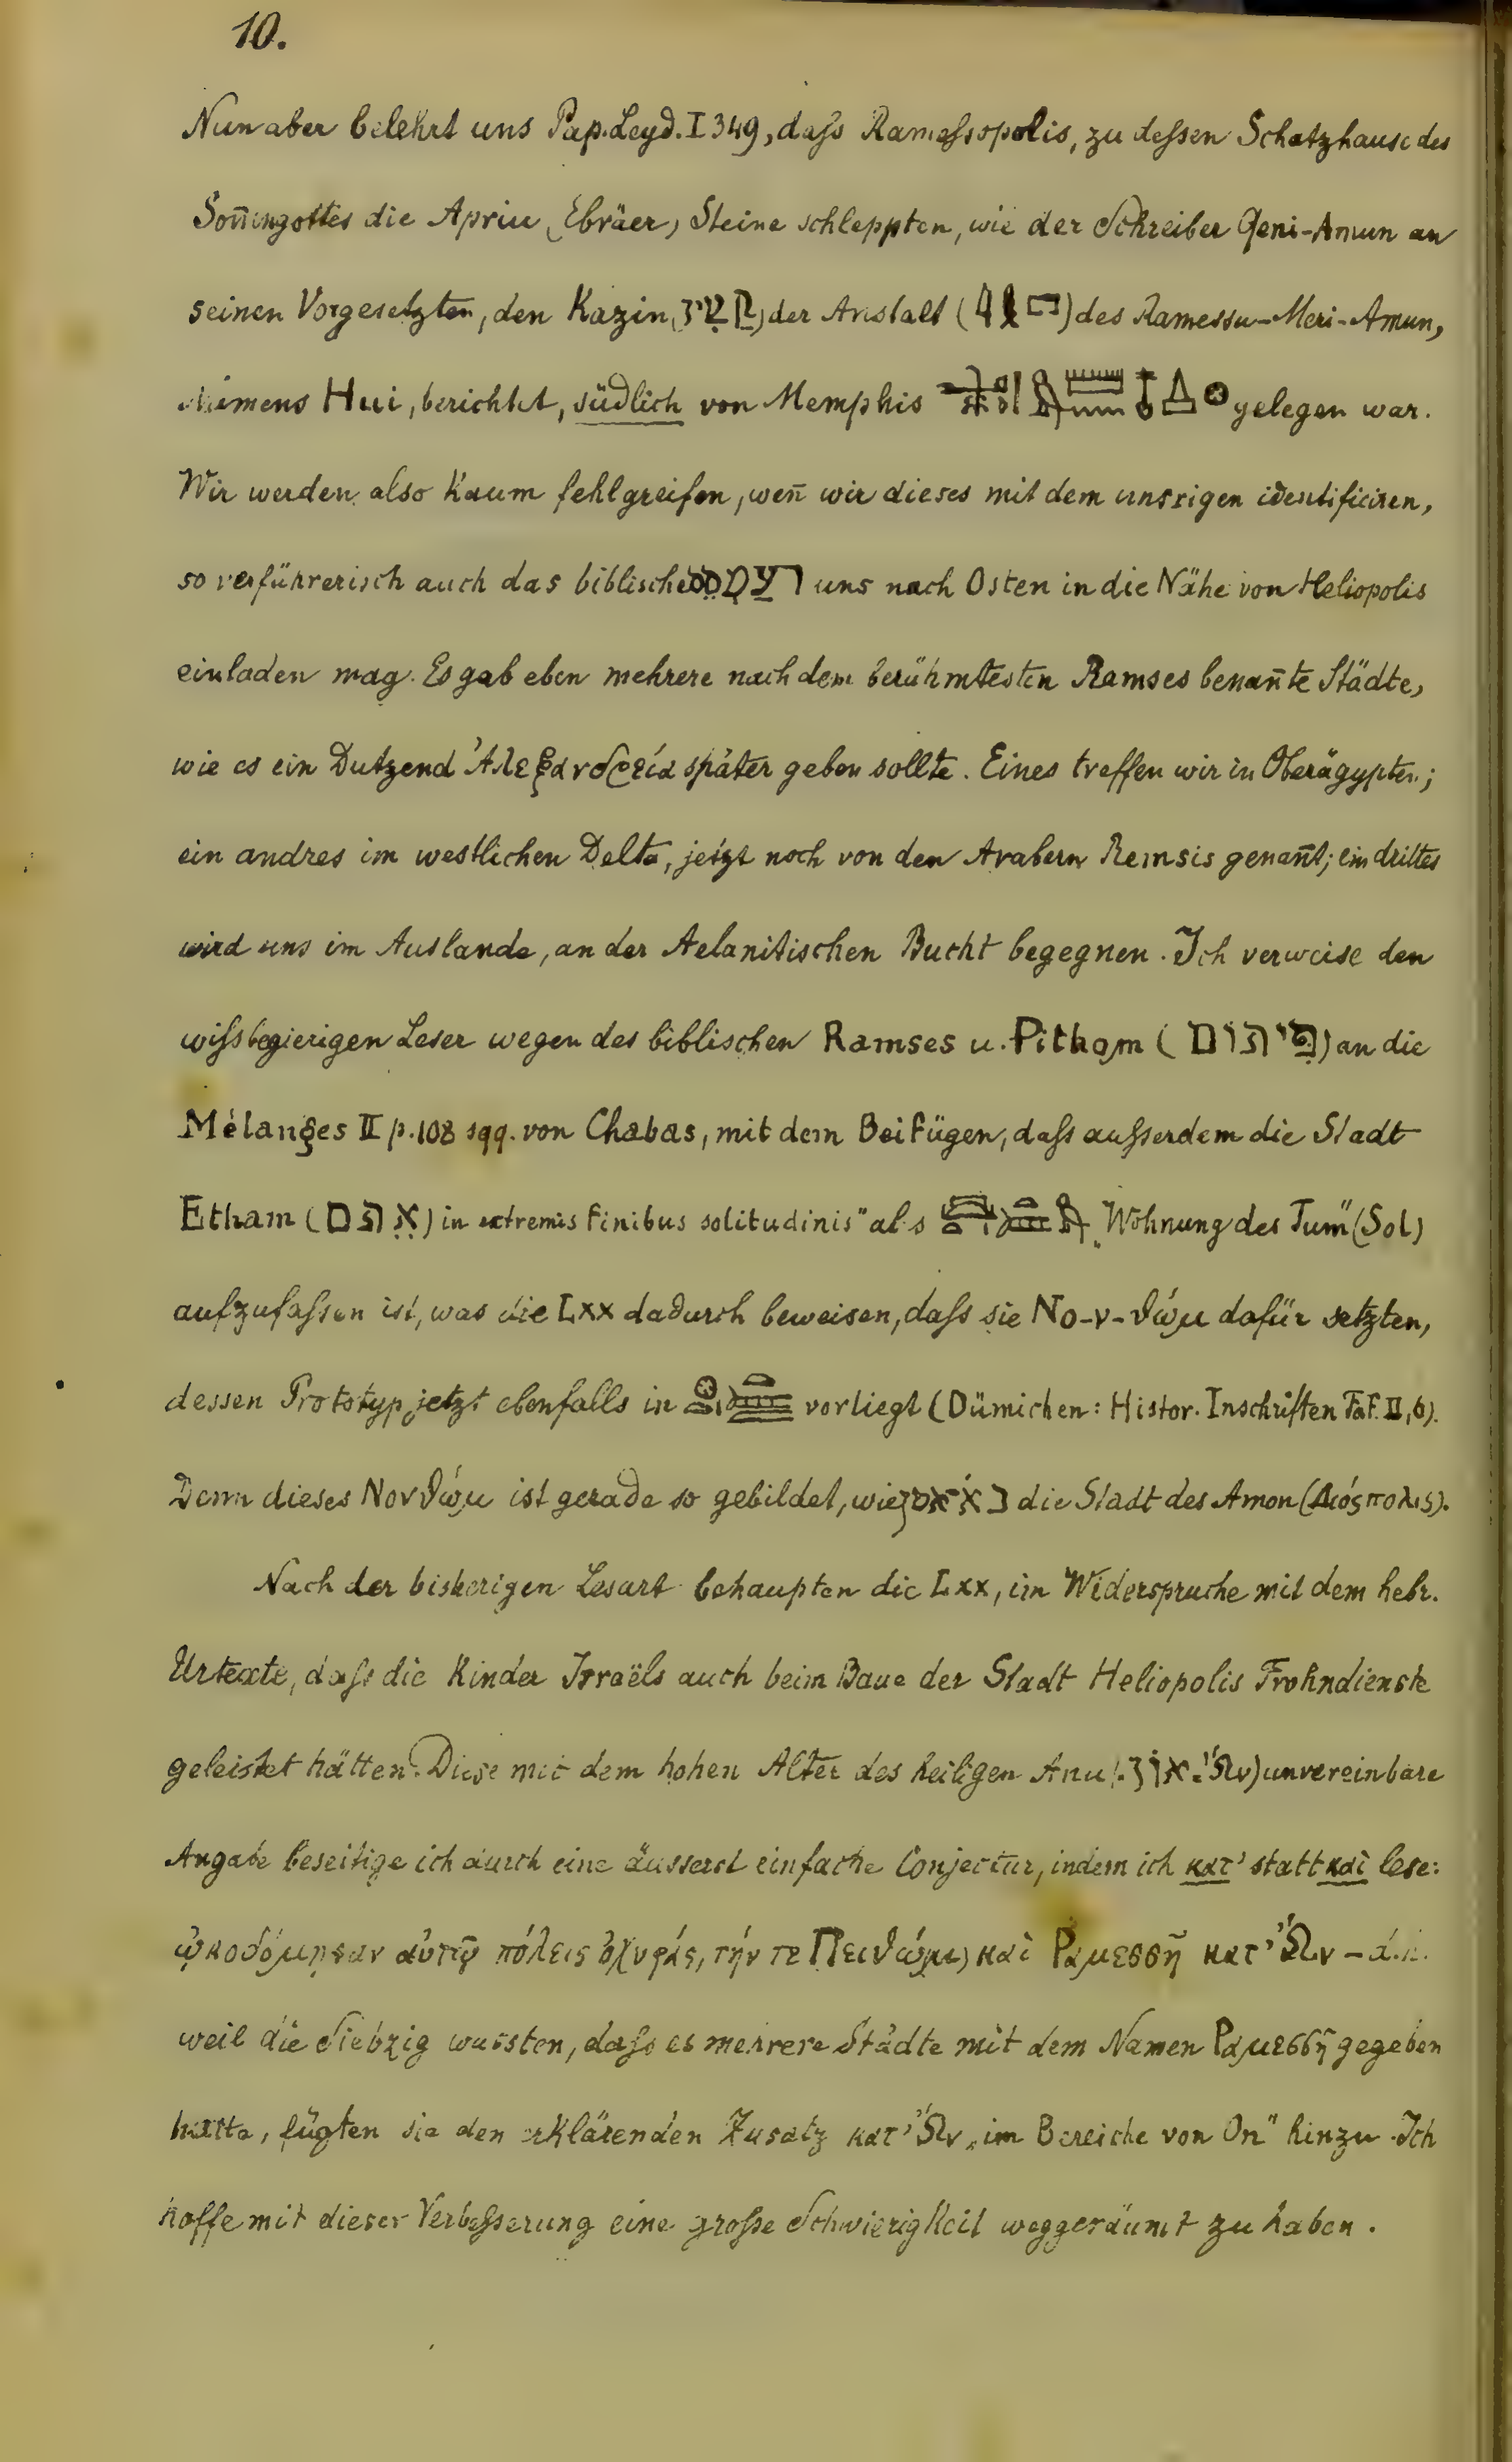 10.
Nun aber belehrt uns Pap. Leyd. I 349, daſs Rameſsopolis, zu deſsen Schatzhause des
Soñengottes die Apriu (Ebräer) Steine schleppten, wie der Schreiber Qeni-Amun an
seinen Vorgesetzten, den Kazin (קצין) der Anstalt ( ) des Ramessu-Meri-Amun,
Namens Hui, berichtet, südlich von Memphis gelegen war.
Wir werden also kaum fehlgreifen, weñ wir dieses mit dem unsrigen identificiren,
so verführerisch auch das biblische רעמסס uns nach Osten in die Nähe von Heliopolis
einladen mag. Es gab eben mehrere nach dem berühmtesten Ramses benañte Städte,
wie es ein Dutzend Ἀλεξανδρεία später geben sollte. Eines treffen wir in Oberägypten;
ein andres im westlichen Delta, jetzt noch von den Arabern Remsis genañt; ein drittes
wird uns im Auslande, an der Aelanitischen Bucht begegnen. Ich verweise den
wiſsbegierigen Leser wegen des biblischen Ramses u. Pithom (פיתום) an die
Mélanges II p. 108 sqq. von Chabas, mit dem Beifügen, daſs auſserdem die Stadt
Etham (אתם) in extremis finibus solitudinis" als „Wohnung des Tum" (Sol)
aufzufaſsen ist, was die Lxx dadurch beweisen, daſs sie Νο-ν-θώμ dafür setzten,
dessen Prototyp jetzt ebenfalls in vorliegt (Dümichen: Histor. Inschriften Taf. II, 6).
Denn dieses Νονθώμ ist gerade so gebildet, wie נא אמון die Stadt des Amon (Διόςπολις).
Nach der bisherigen Lesart behaupten die Lxx, im Widerspruche mit dem hebr.
Urtexte, daſs die Kinder Israëls auch beim Baue der Stadt Heliopolis Frohndienste
geleistet hätten. Diese mit dem hohen Alter des heiligen Anu (און Ὤν) unvereinbare
Angabe beseitige ich durch eine äusserst einfache Conjectur, indem ich κατ' statt καὶ lese:
ᾠκοδόμησαν αὐτῷ πόλεις ὀχυράς, τήν τε Πειθώμ) καὶ Ραμεσσῆ κατ' Ὤν – d.h.
weil die Siebzig wussten, daſs es mehrere Städte mit dem Namen Ραμεσσῆ gegeben
hatte, fügten sie den erklärenden Zusatz κατ' Ὤν „im Bereiche von On" hinzu. Ich
hoffe mit dieser Verbeſserung eine groſse Schwierigkeit weggeräumt zu haben.